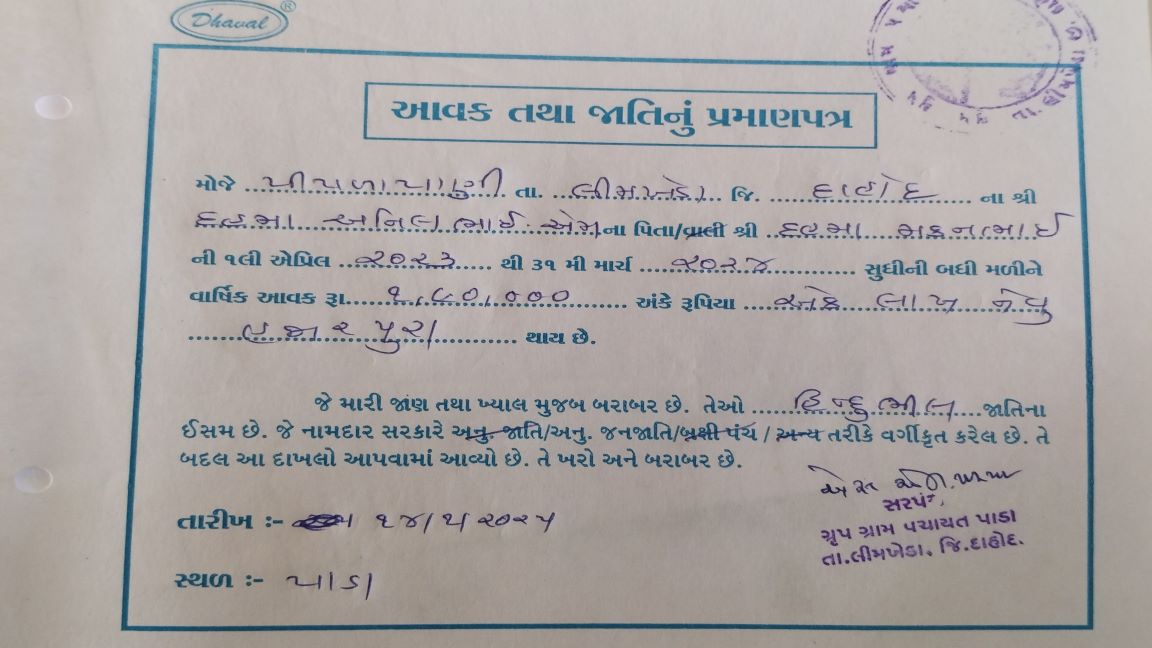 Dhaval ®
આવક તથા જાતિનું પ્રમાણપત્ર
મોજે પીપળાપાણી તા. લીમખેડા જિ. દાહોદ ના શ્રી
અનિલભાઈ એમ ના પિતા/વાલી શ્રી મકનભાઈ
ની ૧લી એપ્રિલ ૨૦૨૩ થી ૩૧ મી માર્ચ ૨૦૨૪ સુધીની બધી મળીને
વાર્ષિક આવક રૂા. ૧,૯૦,૦૦૦ અંકે રૂપિયા એક લાખ નેવુ
હજાર પુરા થાય છે.
જે મારી જાંણ તથા ખ્યાલ મુજબ બરાબર છે. તેઓ હિન્દુ ભીલ જાતિના
ઈસમ છે. જે નામદાર સરકારે અનુ. જાતિ/અનુ. જનજાતિ/બક્ષી પંચ / અન્ય તરીકે વર્ગીકૃત કરેલ છે. તે
બદલ આ દાખલો આપવામાં આવ્યો છે. તે ખરો અને બરાબર છે.
સરપંચ,
ગ્રુપ ગ્રામ પચાયત પાડા
તા.લીમખેડા. જિ.દાહોદ.
તારીખ :- ૧૪/૫/૨૦૨૫
સ્થળ :- પાડા